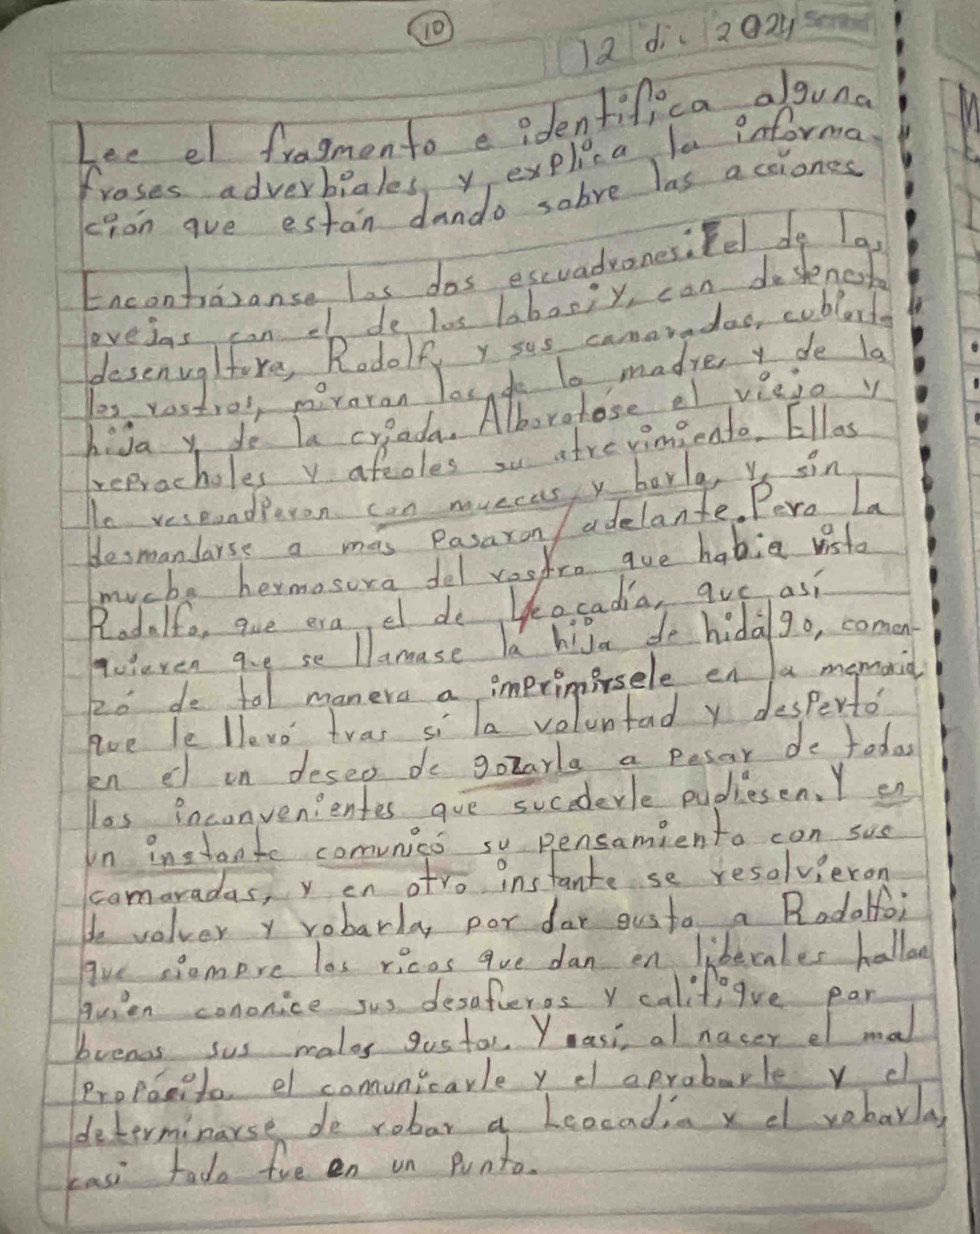 10
12 di. 2024
Lee el fragmento e identifica alguna
frases adverbiales, y explica la informa-
ción que están dando sobre las acciones
Encontráranse los dos escuadrones: El de las
ovejas con el de los lobos; y, con deshonesta
desenvoltura, Rodolfo y sus camaradas, cubierto
los rostros, miraron los de la madre, y de la
hija y de la criada. Alborotóse el viejo y
reprocholes y afeoles su atrevimiento. Ellos
le respondieron con muecas y burla, y, sin
desmandarse a más pasaron adelante. Pero La
mucha hermosura del rostro que había visto
Rodolfo, que era el de Leocadia, que así
quieren que se llamase la hija de hidálgo, comen-
zó de tal manera a imprimírsele en la memoria
que le llevó tras sí la voluntad y despertó
en él un deseo de gozarla a pesar de todos
los inconvenientes que sucederle pudiesen. Y en
un instante comunicó su pensamiento con sus
camaradas, y en otro instante se resolvieron
de volver y robarla, por dar gusto a Rodolfo;
que siempre los ricos que dan en liberales hallan
quien cononice sus desafueros y califique por
buenos sus malos gustos. Y así, al nacer el mal
Propósito el comunicarle y el aprobarle y el
determinarse de robar a Leocadia y el robarla,
casi todo fue en un Punto.